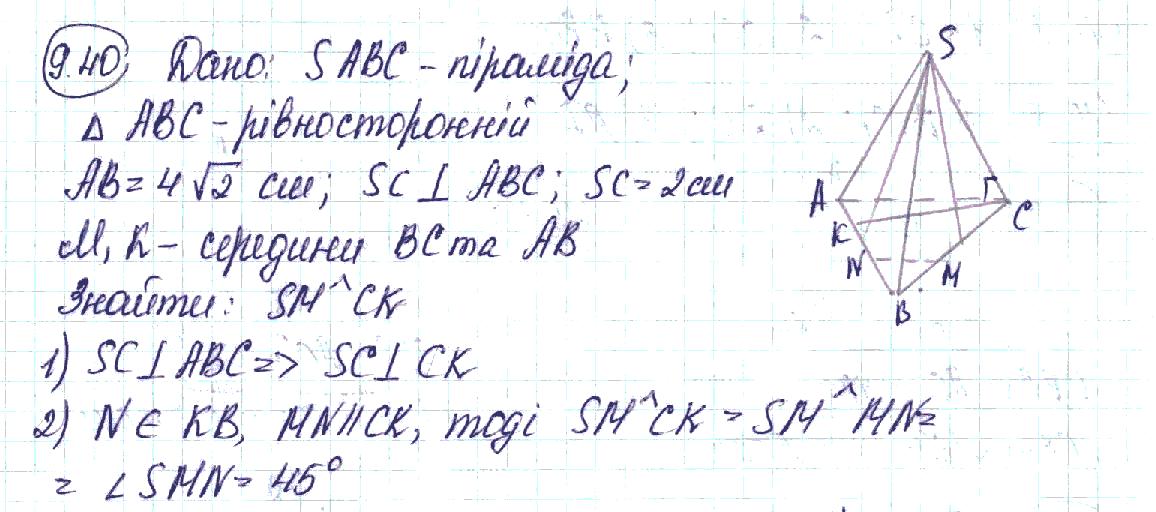 9.40 Дано: SABC - піраміда;
Δ ABC - рівносторонній
AB = 4√2 см; SC ⊥ ABC; SC = 2 см
M, K - середини BC та AB
Знайти: SM ^ CK
1) SC ⊥ ABC => SC ⊥ CK
2) N ∈ KB, MN || CK, тоді SM ^ CK = SM ^ MN =
= ∠ SMN = 45°
S
A
C
K
N
M
B